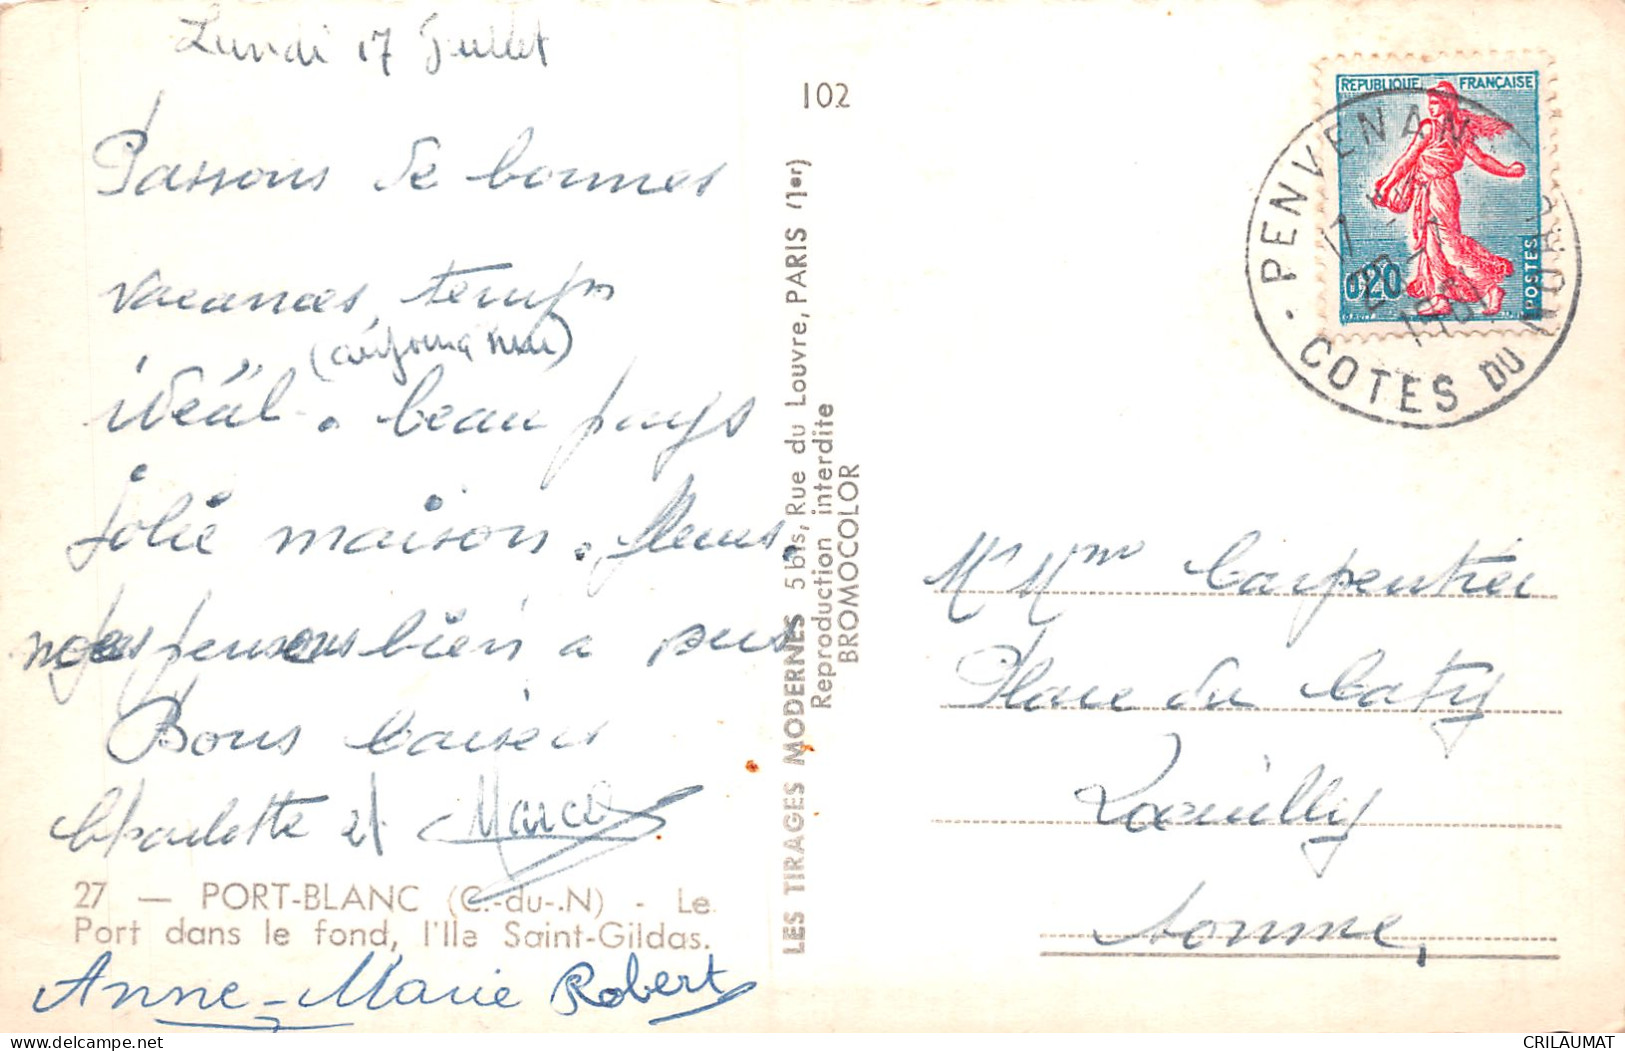 Lundi 17 Juillet
Passons de bonnes
vacances, temps
idéal. beau pays
jolie maison. fleurs.
pensons bien à
Bons baisers
Paulette et Marcel
27 — PORT-BLANC (C.-du-.N) - Le
Port dans le fond, l'Ile Saint-Gildas.
Anne-Marie Robert
102
LES TIRAGES MODERNES 5 bis, Rue du Louvre, PARIS (1er)
Reproduction interdite
BROMOCOLOR
REPUBLIQUE FRANÇAISE
0,20
POSTES
PENVENAN
17 H
1961
COTES DU NORD
Mr Mme Carpentier
Place du
Somme,
CRILAUMAT